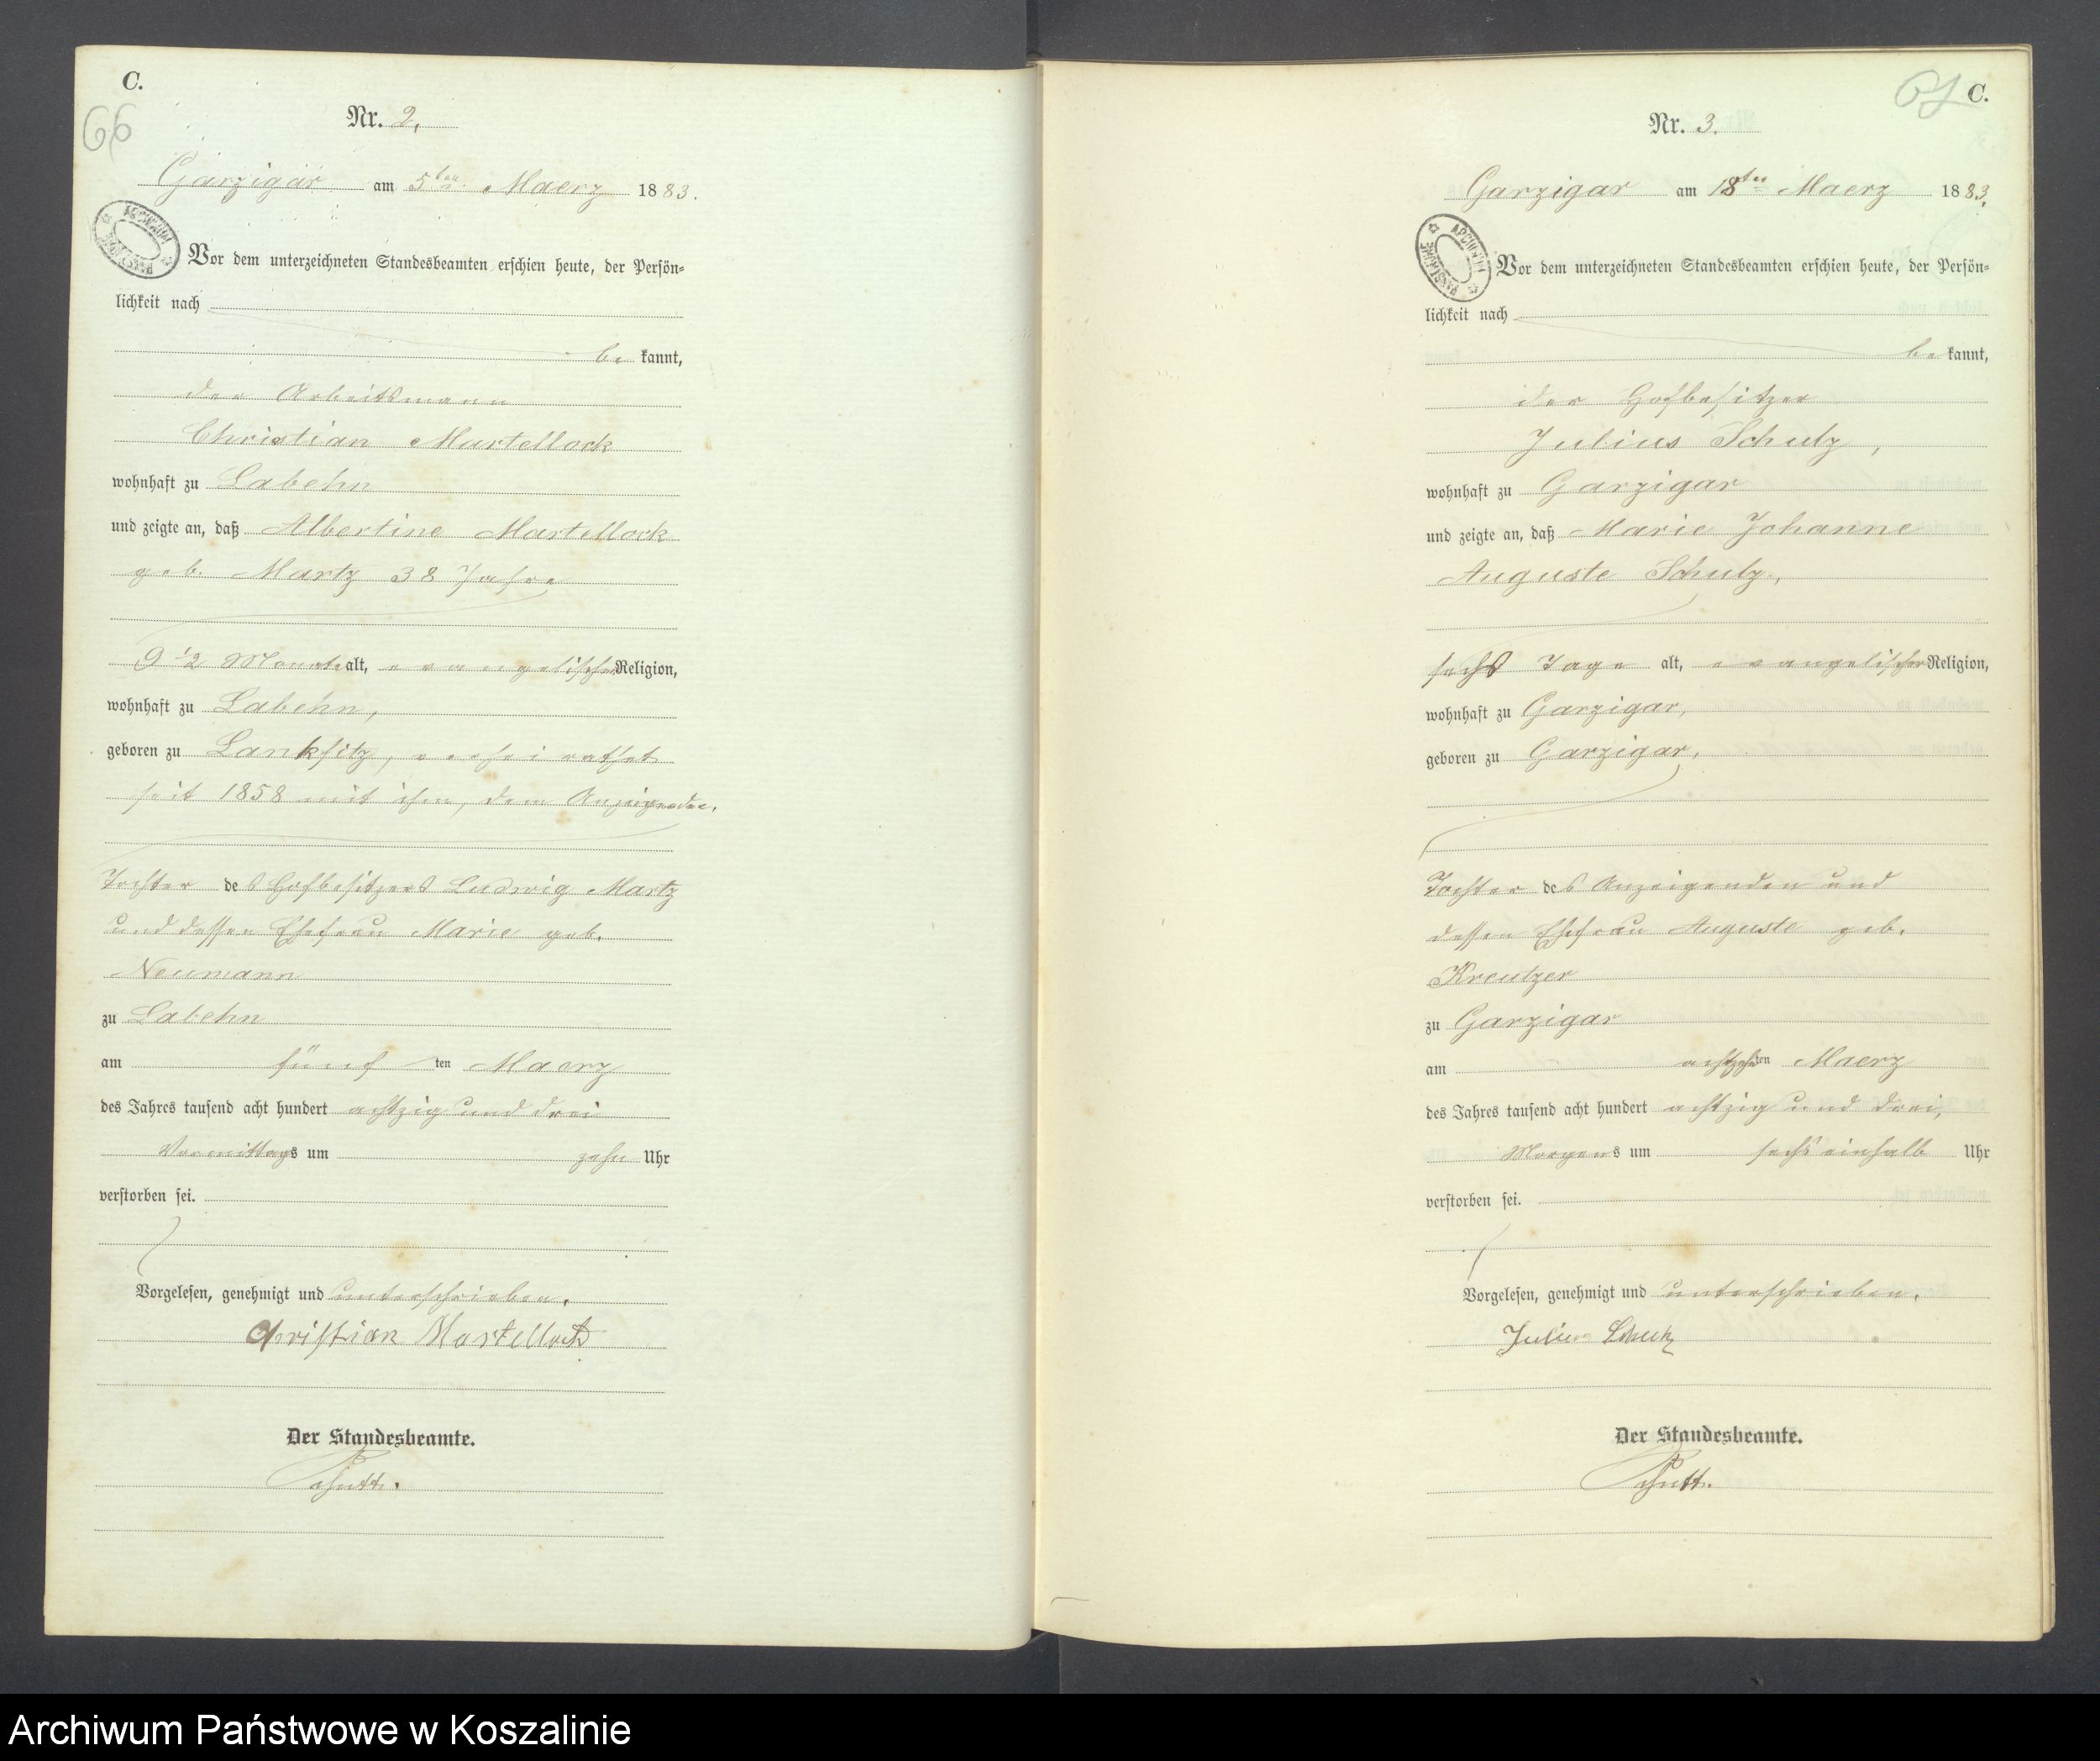 C.
66
Nr. 2.
Garzigar am 5ten Maerz 1883.
ARCHIWUM PAŃSTWOWE
Vor dem unterzeichneten Standesbeamten erschien heute, der Persön=
lichkeit nach
be kannt,
der Arbeitsmann
Christian Martellock
wohnhaft zu Labehn
und zeigte an, daß Albertine Martellock
geb. Martz 38 Jahre
9 1/2 Monate alt, evangelischer Religion,
wohnhaft zu Labehn,
geboren zu Lanksitz, verheirathet
seit 1858 mit ihm, dem Anzeigenden.
Tochter des Hofbesitzers Ludwig Martz
und dessen Ehefrau Marie geb.
Neumann
zu Labehn
am fünf ten Maerz
des Jahres tausend acht hundert achtzig und drei
Vormittags um zehn Uhr
verstorben sei.
Vorgelesen, genehmigt und unterschrieben.
Christian Martellock
Der Standesbeamte.
C.
Nr. 3.
Garzigar am 18ten Maerz 1883.
ARCHIWUM PAŃSTWOWE
Vor dem unterzeichneten Standesbeamten erschien heute, der Persön=
lichkeit nach
be kannt,
der Hofbesitzer
Julius Schulz,
wohnhaft zu Garzigar
und zeigte an, daß Marie Johanne
Auguste Schulz,
sechs Tage alt, evangelischer Religion,
wohnhaft zu Garzigar,
geboren zu Garzigar,
Tochter des Anzeigenden und
dessen Ehefrau Auguste geb.
Kreutzer
zu Garzigar
am achtzehnten Maerz
des Jahres tausend acht hundert achtzig und drei,
Morgens um sechs einhalb Uhr
verstorben sei.
Vorgelesen, genehmigt und unterschrieben.
Julius Schulz
Der Standesbeamte.
Archiwum Państwowe w Koszalinie